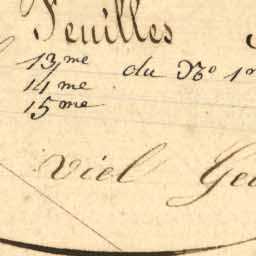 Feuilles
13me
14me du No 1
15me
Viel Ge